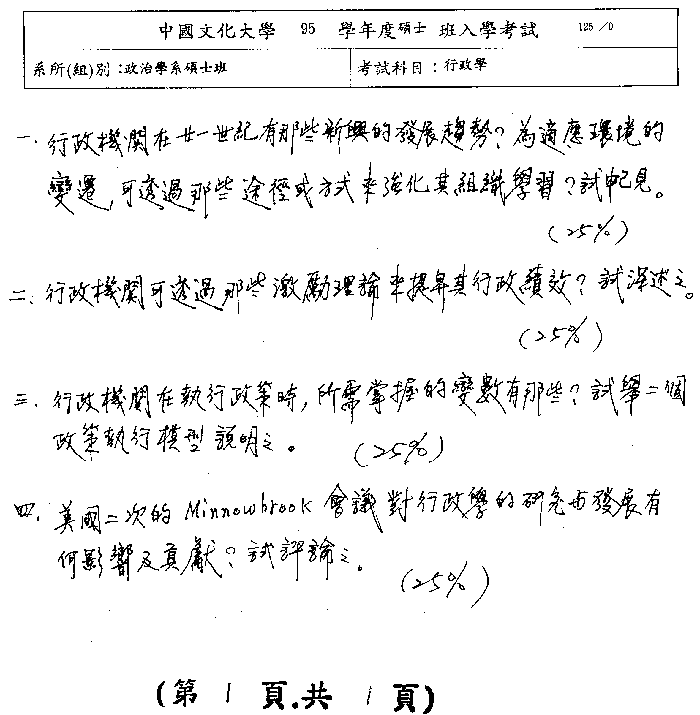 中國文化大學 95 學年度碩士 班入學考試
系所(組)別：政治學系碩士班 考試科目：行政學
一、行政機關在廿一世紀有那些新興的發展趨勢？為適應環境的
變遷，可透過那些途徑或方式來強化其組織學習？試申己見。
(25%)
二、行政機關可透過那些激勵理論來提昇其行政績效？試深述之。
(25%)
三、行政機關在執行政策時，所需掌握的變數有那些？試舉二個
政策執行模型說明之。 (25%)
四、美國二次的 Minnowbrook 會議對行政學的研究與發展有
何影響及貢獻？試評論之。
(25%)
(第 1 頁.共 1 頁)